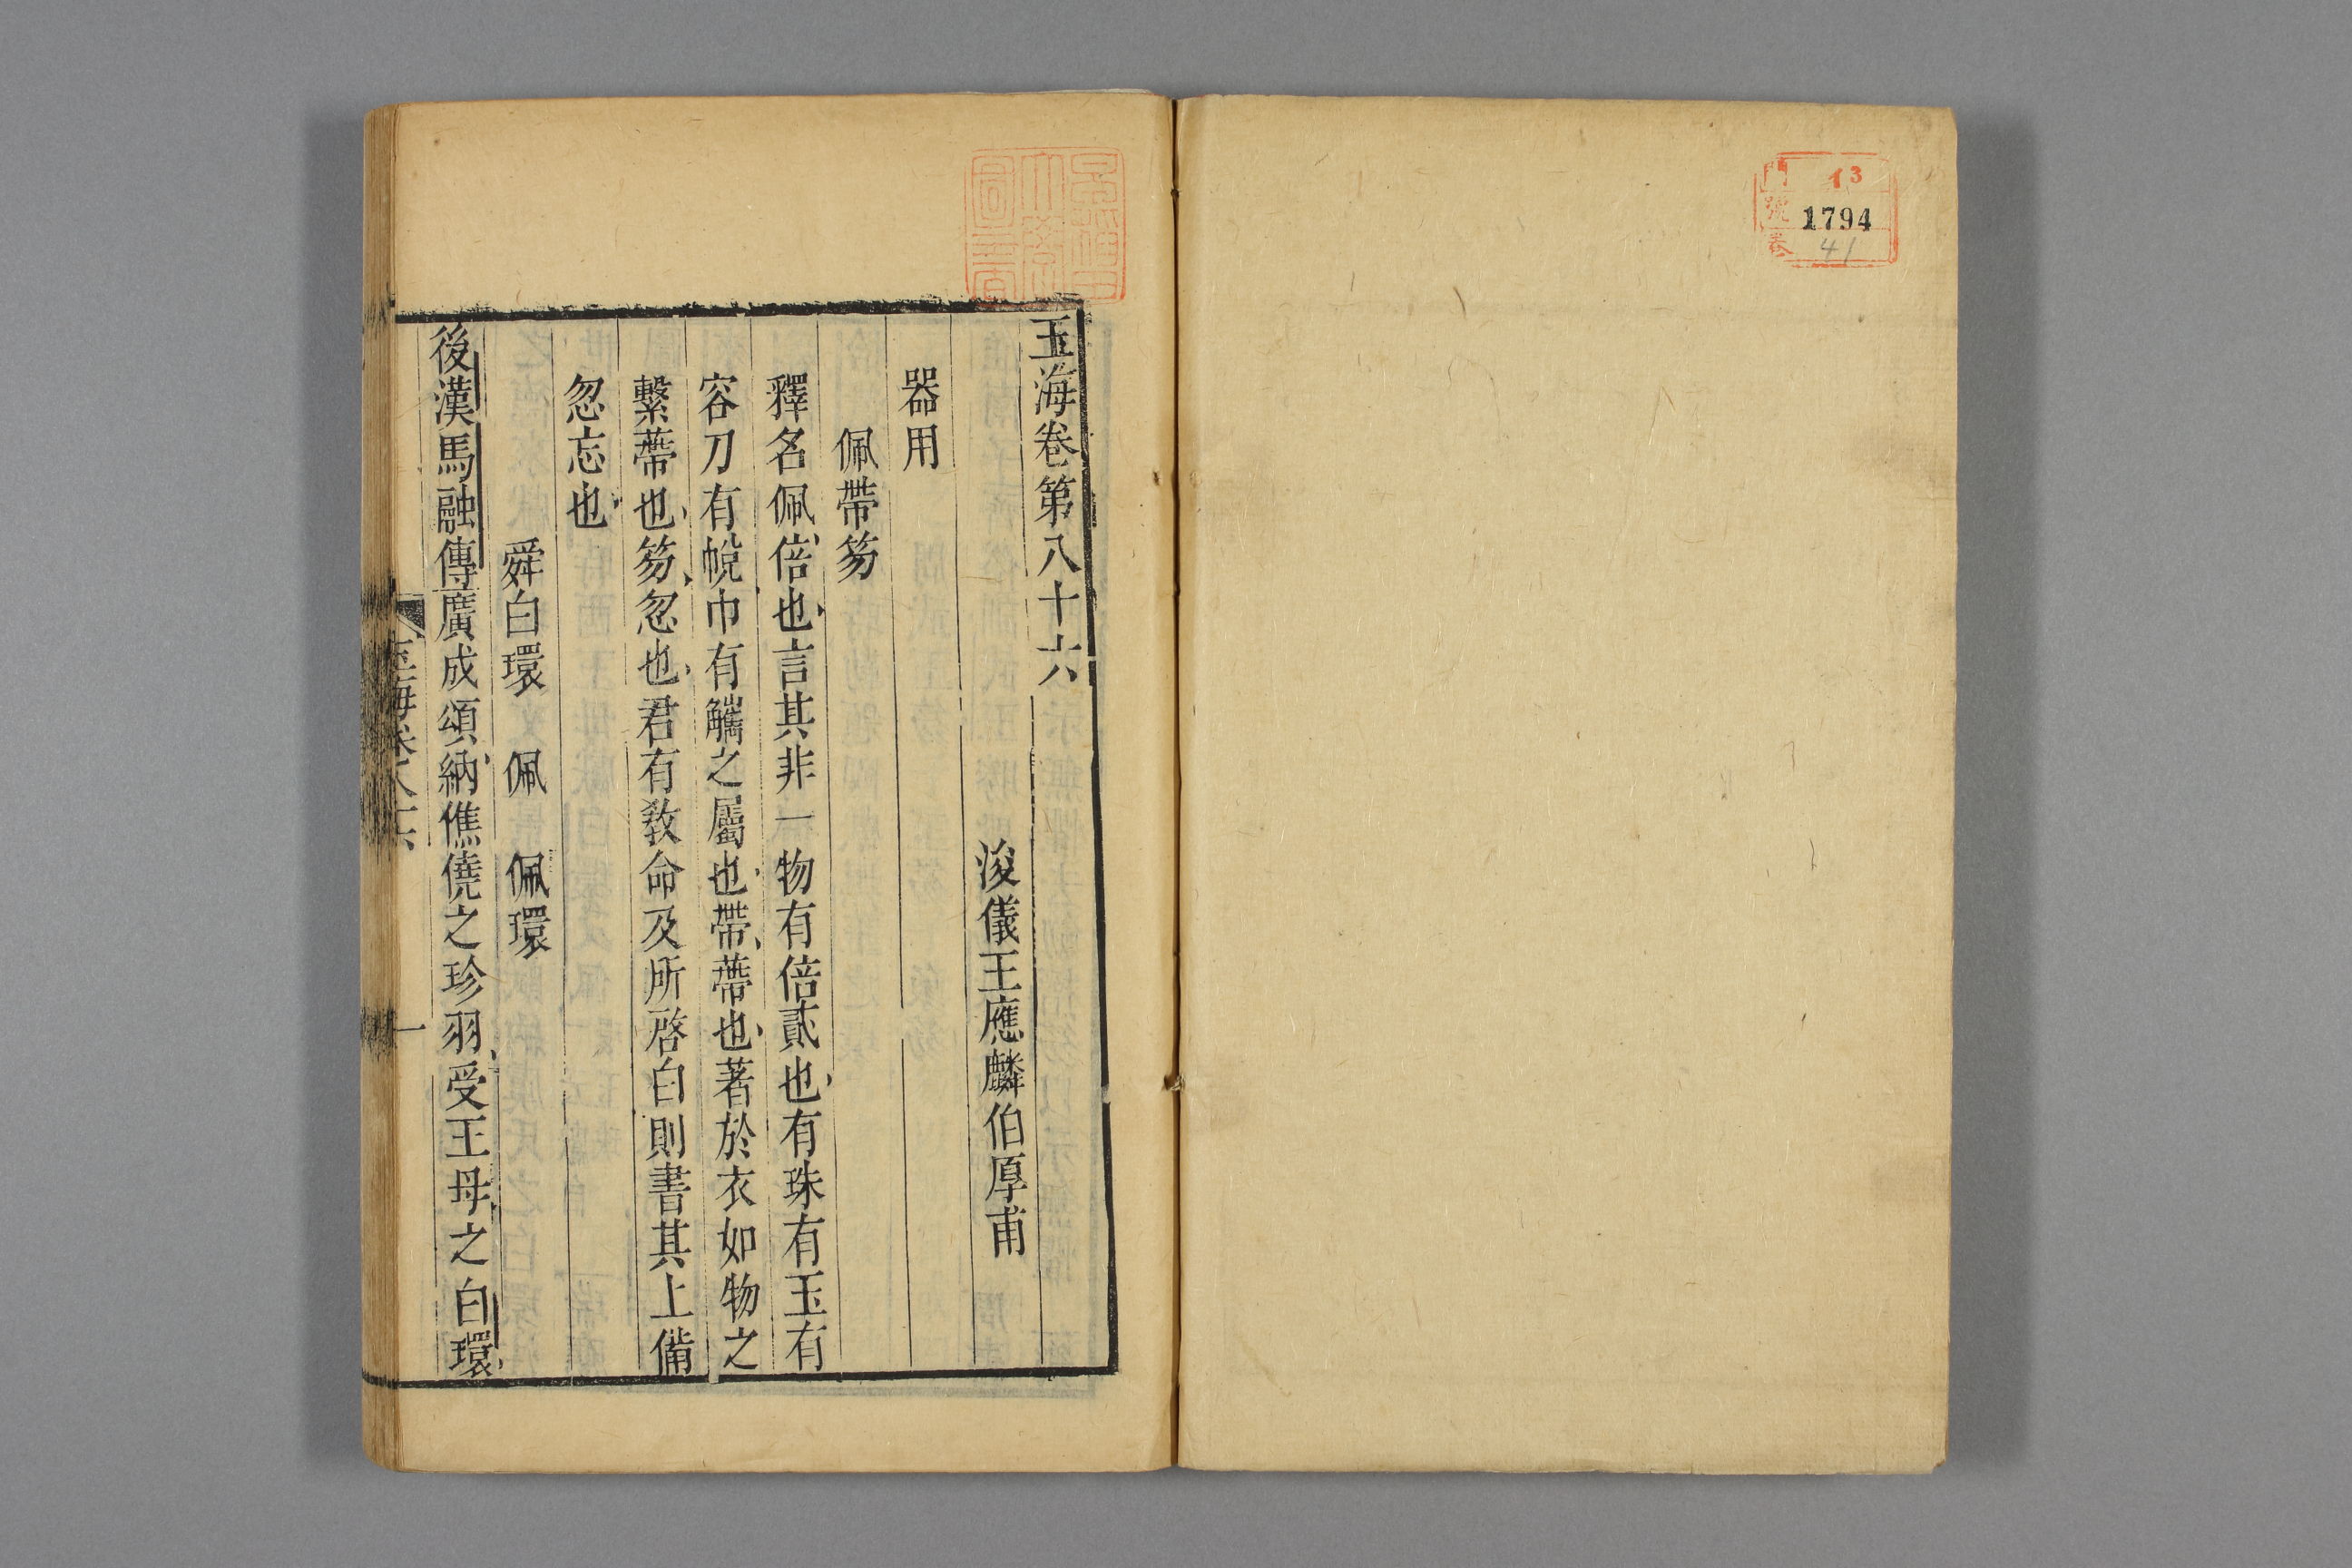 門 13
號 1794
卷 41
玉海卷第八十六
浚儀王應麟伯厚甫
器用
佩帶笏
釋名佩倍也言其非一物有倍貳也有珠有玉有
容刀有帨巾有觿之屬也帶蔕也著於衣如物之
繫蔕也笏忽也君有敎命及所啓白則書其上備
忽忘也
舜白環 佩 佩環
後漢馬融傳廣成頌納僬僥之珍羽受王母之白環
玉海卷八十六 一